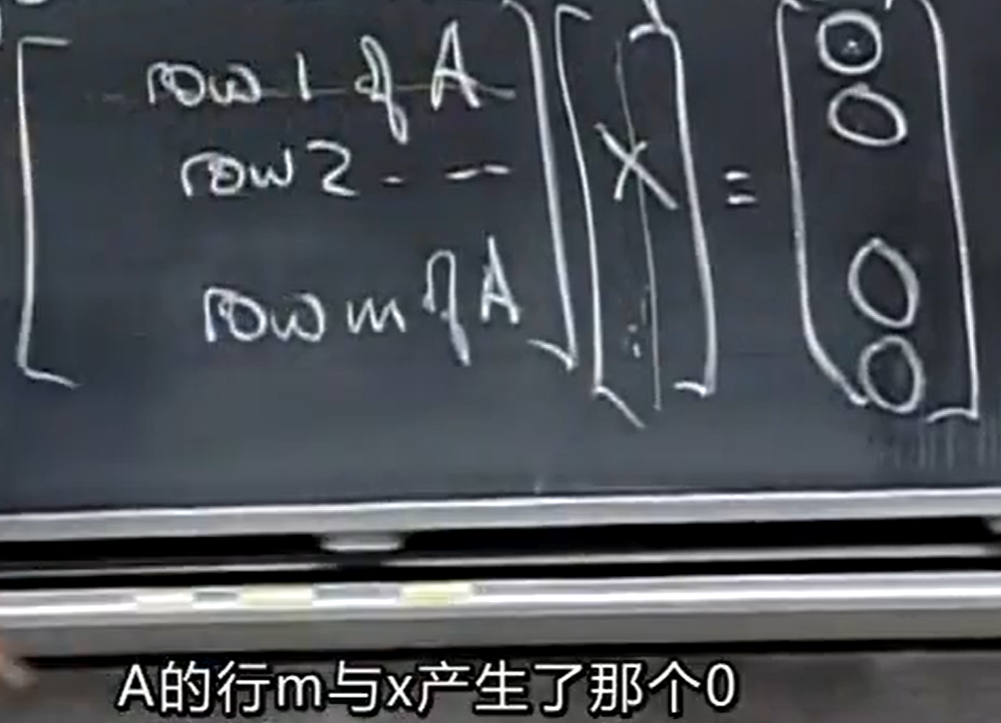 row 1 of A
row 2 - --
row m of A
X
⋮
=
0
0
0
0
A的行m与x产生了那个0